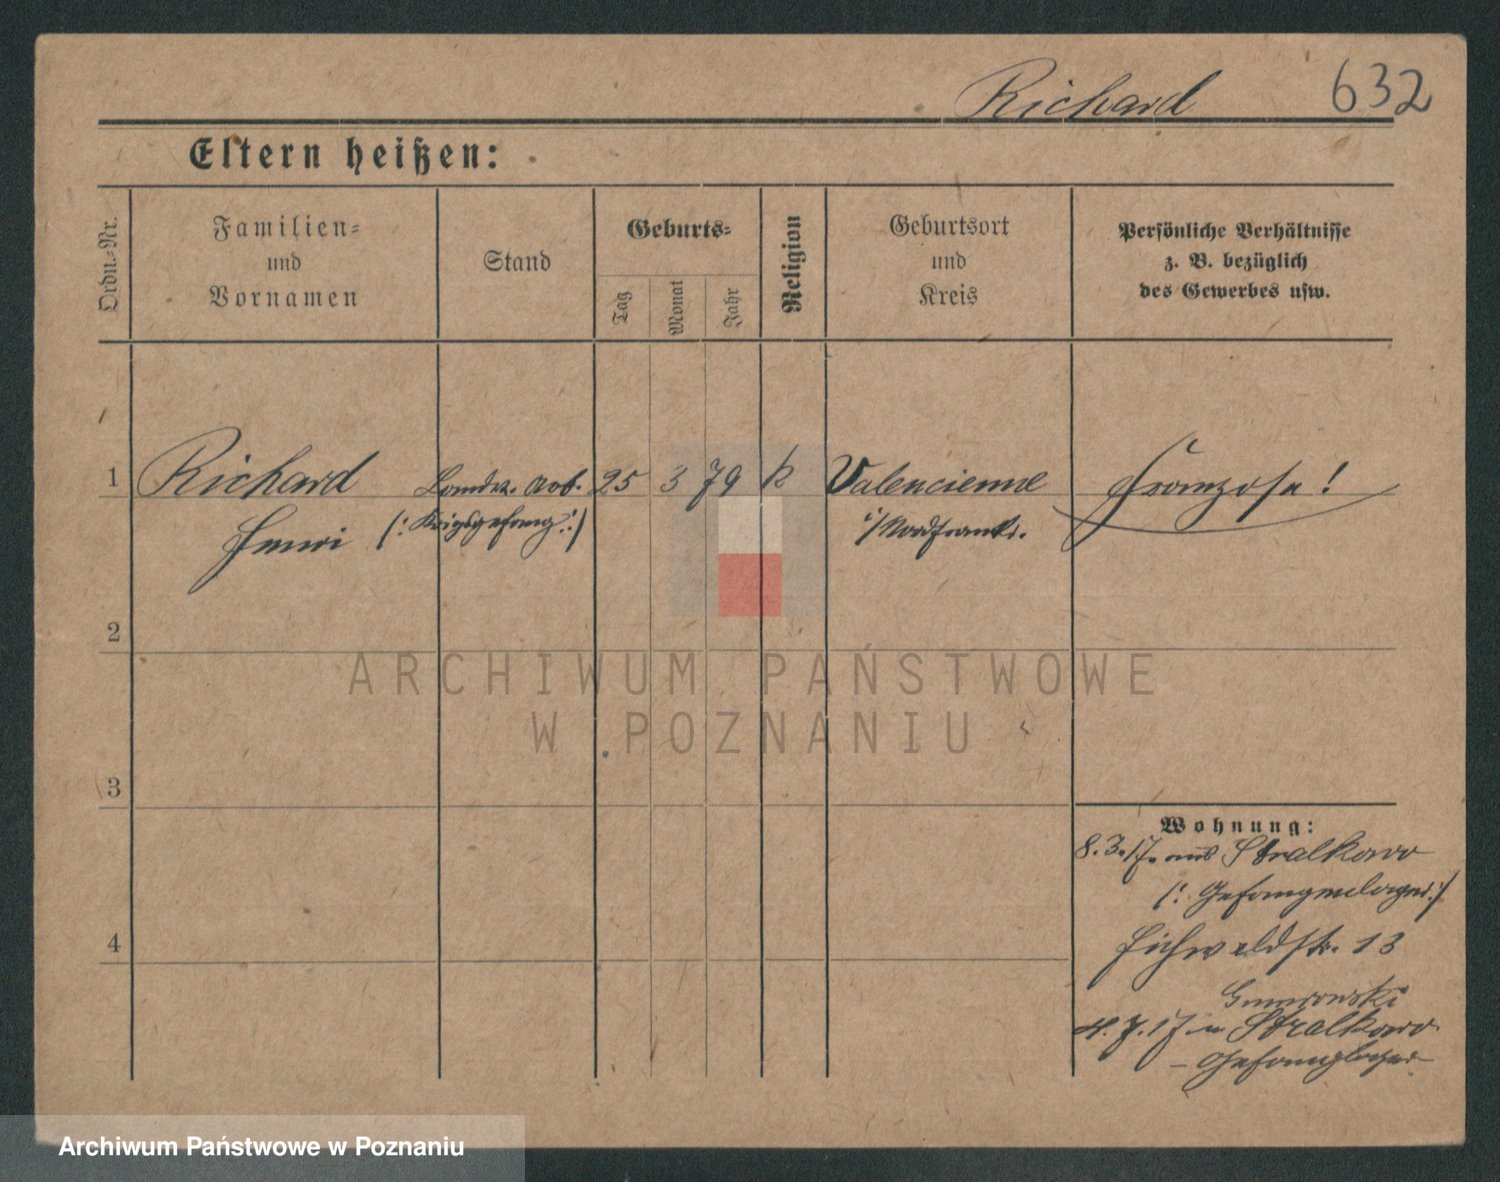 Richard 632
Eltern heißen:
Ordn.-Nr.
Familien-
und
Vornamen
Stand
Geburts-
Tag
Monat
Jahr
Religion
Geburtsort
und
Kreis
Persönliche Verhältnisse
z. B. bezüglich
des Gewerbes usw.
1 Richard Landw. Arb. 25 3 79 k Valencienne Franzose!
Henri (: Kriegsgefang. :) i/Nordfrankr.
2
ARCHIWUM PAŃSTWOWE
W POZNANIU
3
Wohnung:
8.3.17. aus Stralkowo
(: Gefangenlager :)
4 Eichwaldstr. 13
4.7.17 n Stralkowo
- Gefanglager
Archiwum Państwowe w Poznaniu